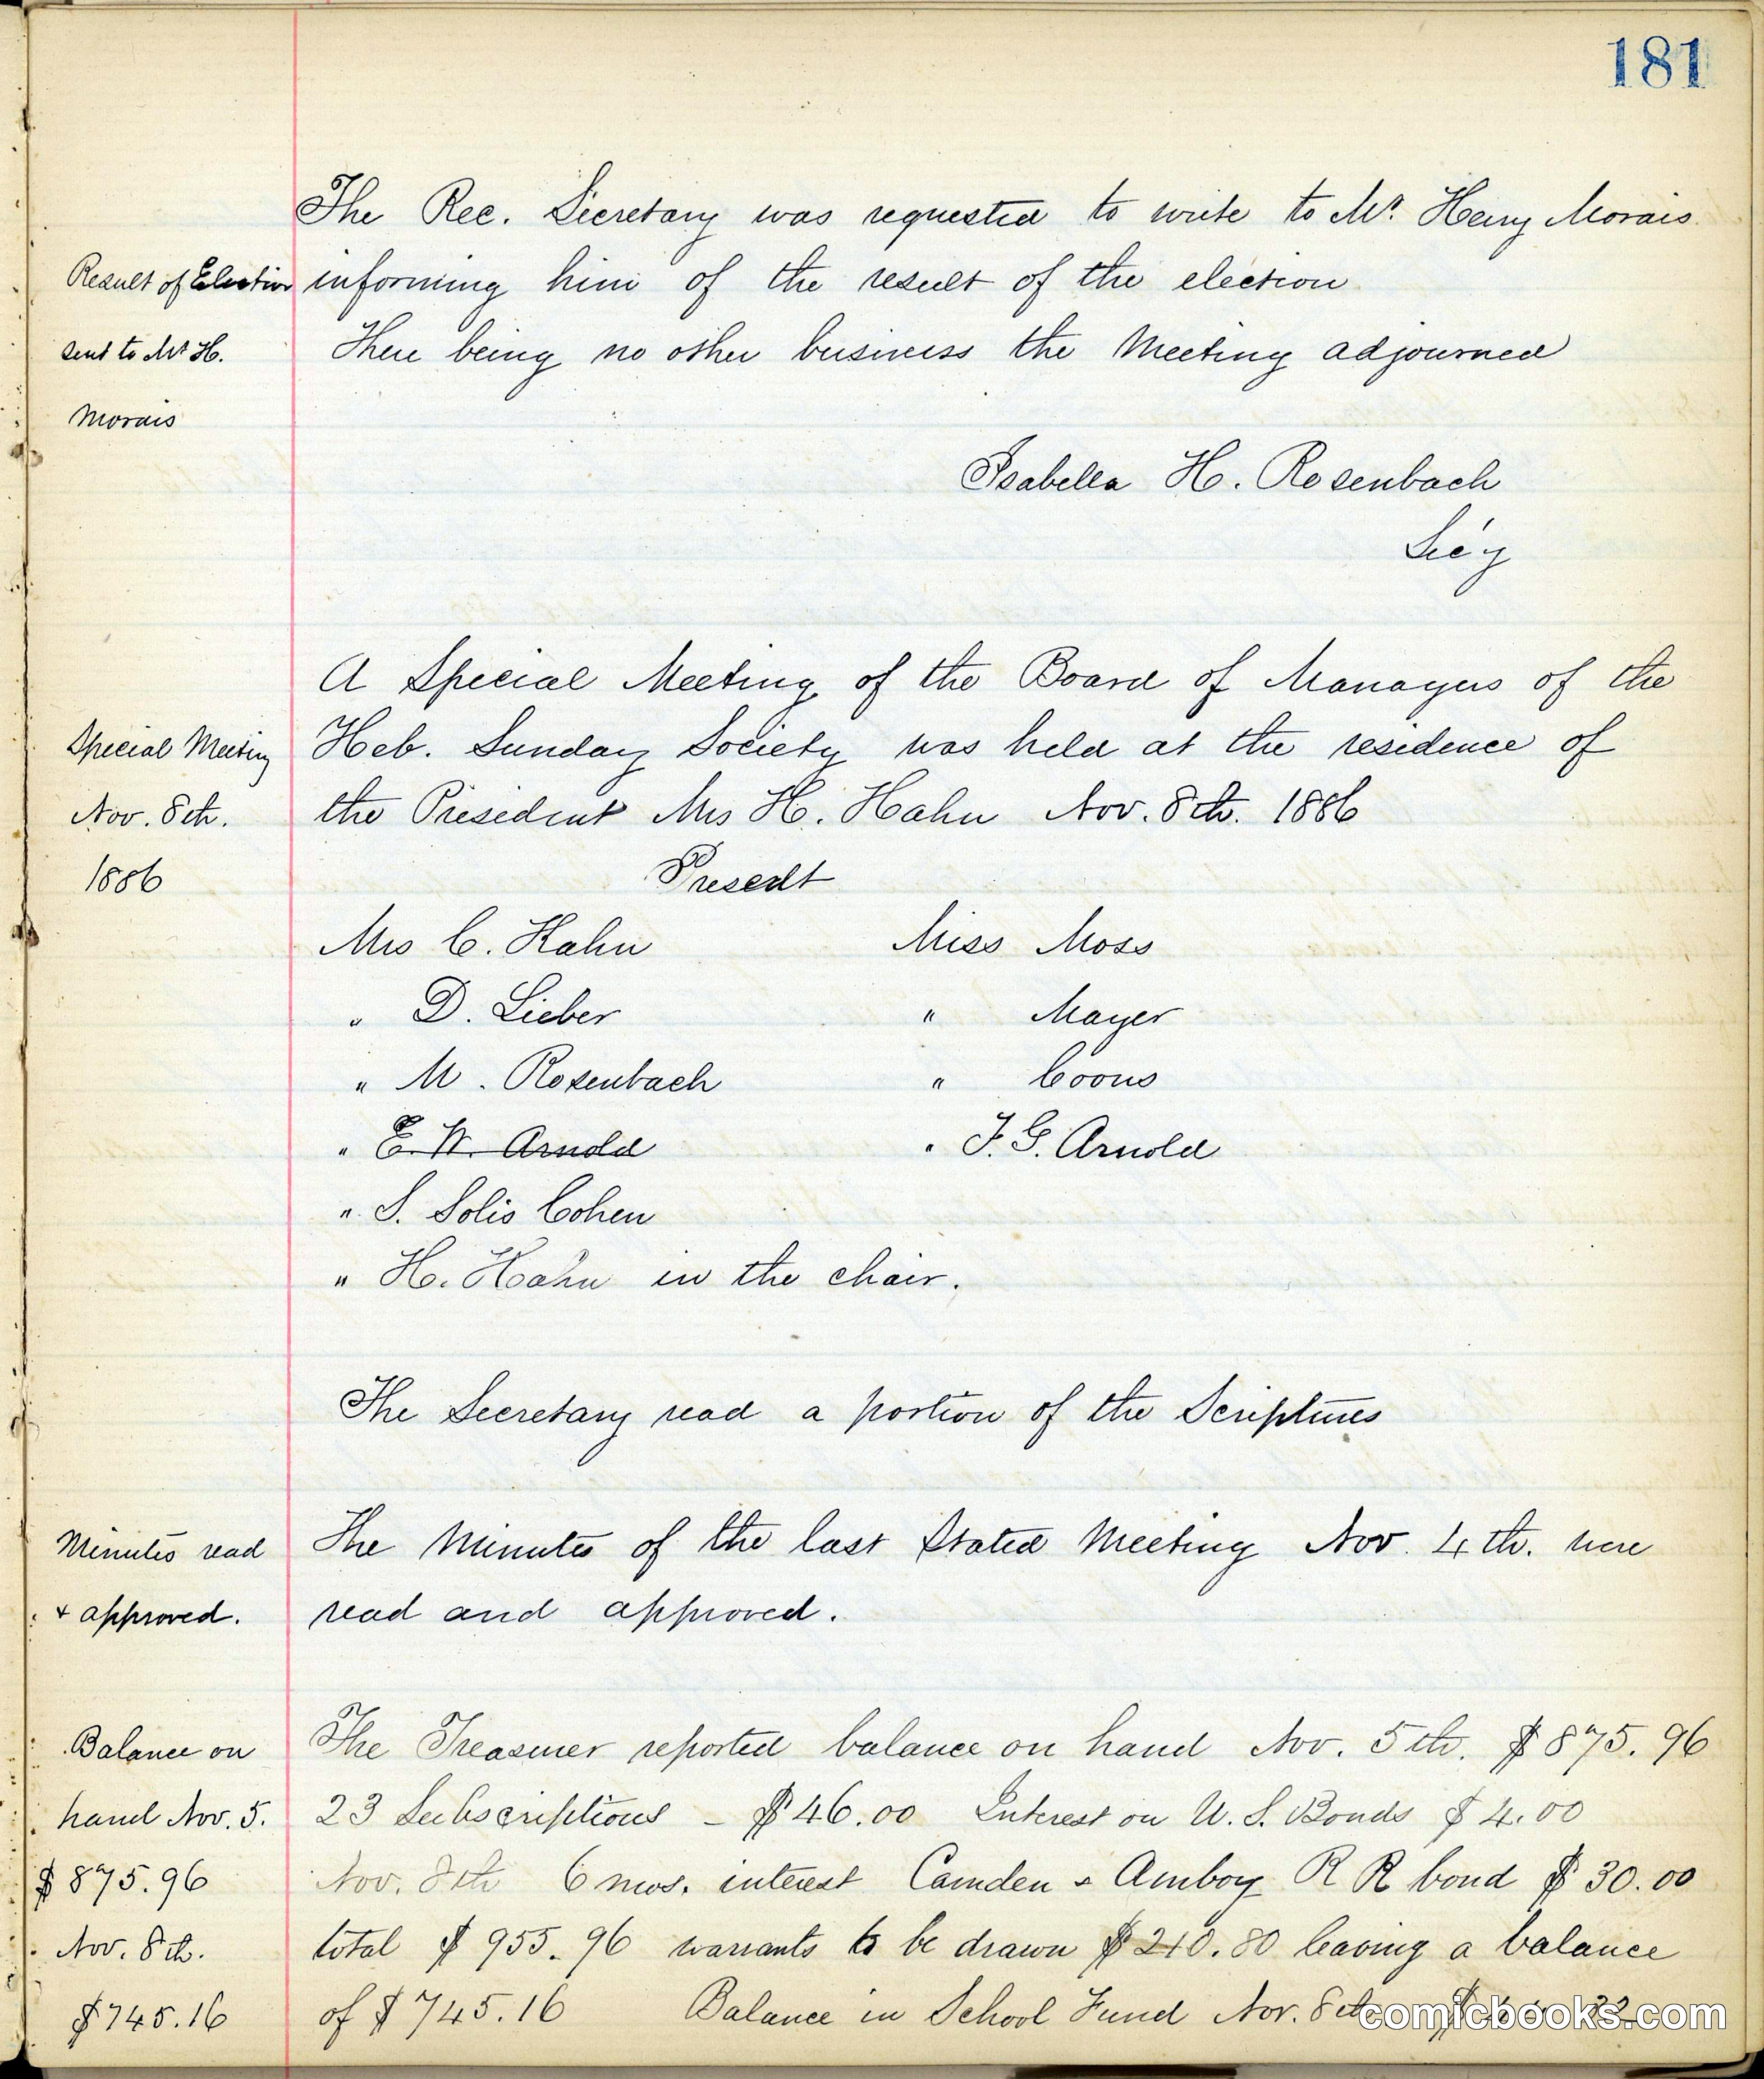 181
The Rec. Secretary was requested to write to Mr. Henry Morais
Result of Election informing him of the result of the election
sent to Mr H. There being no other business the Meeting adjourned
Morais
Isabella H. Rosenbach
Sec'y
A Special Meeting of the Board of Managers of the
Special Meeting Heb. Sunday Society was held at the residence of
Nov. 8th. the President Mrs H. Hahn Nov. 8th. 1886
1886 Present
Mrs C. Hahn Miss Moss
" D. Lieber " Mayer
" M. Rosenbach " Coons
" E. W. Arnold " F. G. Arnold
" S. Solis Cohen
" H. Hahn in the chair.
The Secretary read a portion of the Scriptures
Minutes read The Minutes of the last Stated Meeting Nov. 4th. were
& approved. read and approved.
Balance on The Treasurer reported balance on hand Nov. 5th. $875.96
hand Nov. 5. 23 Subscriptions - $46.00 Interest on U.S. Bonds $4.00
$875.96 Nov. 8th 6 mos. interest Camden & Amboy R R bond $30.00
Nov. 8th. total $955.96 warrants to be drawn $210.80 leaving a balance
$745.16 of $745.16 Balance in School Fund Nov. 8th
comicbooks.com